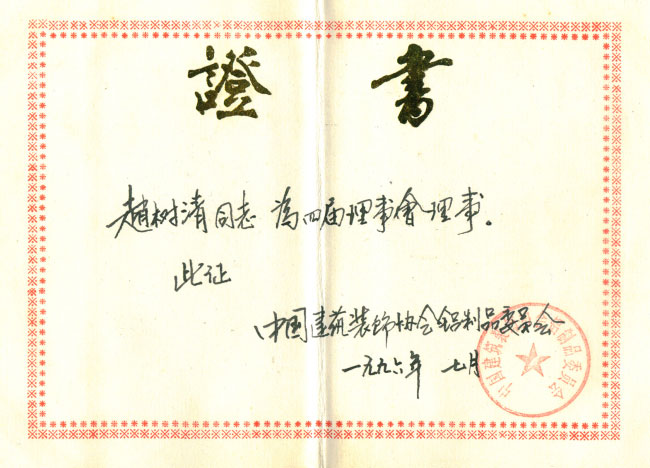 證書
趙树清同志 为四届理事會理事.
此证
中國建筑装饰协会铝制品委员会
一九九六年 七月